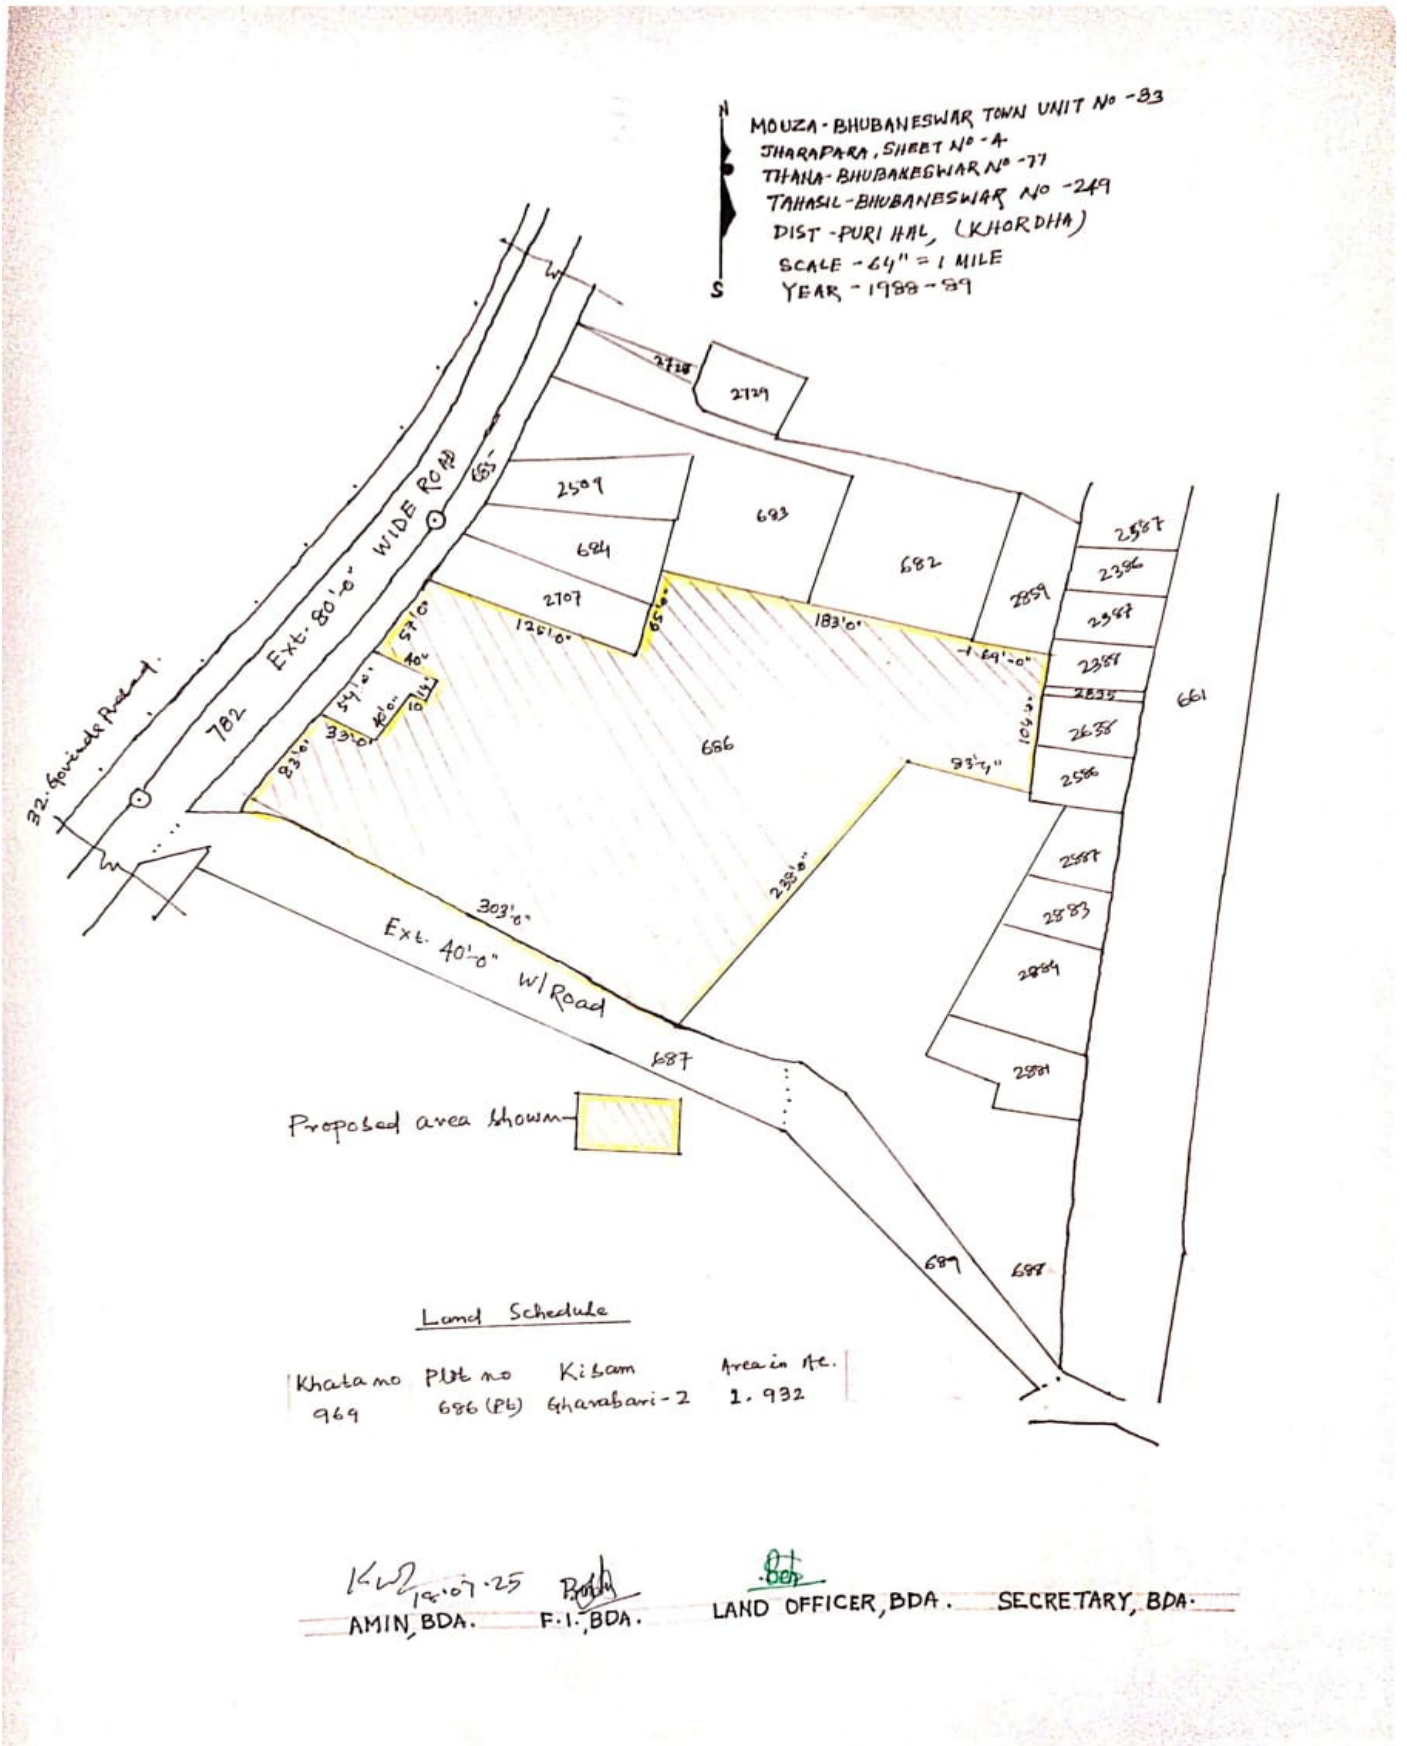 N
S
MOUZA - BHUBANESWAR TOWN UNIT No - 33
JHARAPARA, SHEET No - A
THANA - BHUBANESWAR No - 77
TAHASIL - BHUBANESWAR No - 249
DIST - PURI HAL, (KHORDHA)
SCALE - 64" = 1 MILE
YEAR - 1988-89
2728
2729
685
2509
683
684
682
2707
2859
2587
2386
2387
2388
2835
2638
2586
661
Ext. 80'-0" WIDE ROAD
782
57'0"
125'0"
65'0"
183'0"
69'-0"
40'
14'
10
54'0"
40'0"
33'0"
83'0"
104'0"
686
238'0"
303'0"
Ext. 40'-0" W/Road
687
2887
2883
2884
2881
689
688
Proposed area shown
Land Schedule
Khata no Plot no Kisam Area in Ac.
969 686 (Pt) Gharabari-2 1.932
18.07.25
AMIN, BDA. F.I., BDA. LAND OFFICER, BDA. SECRETARY, BDA.